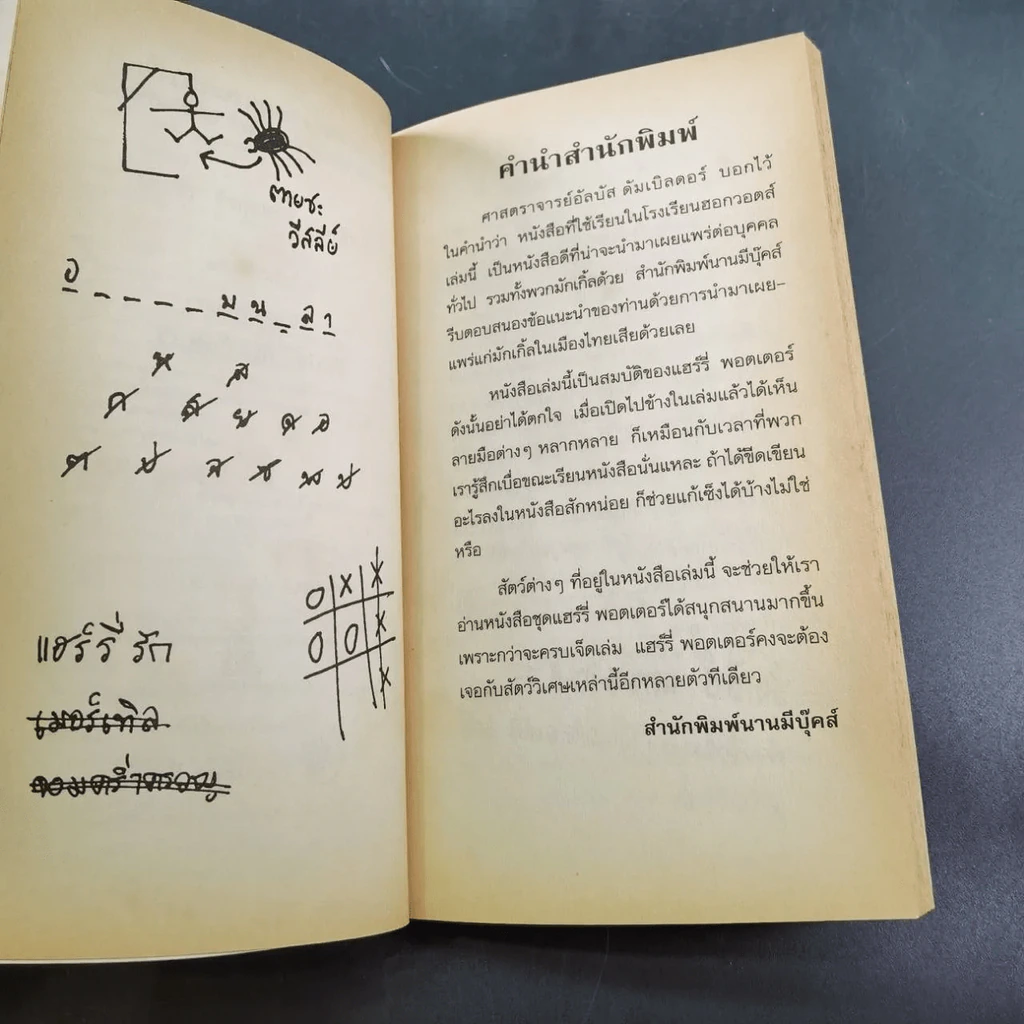 ตายซะ
วีสลีย์
อ _ _ _ _ บ น _ ล า
ห ส
แฮร์รี่ รัก
เมอร์เทิล
จอมคร่ำครวญ
O X X
O O X
X
คำนำสำนักพิมพ์
ศาสตราจารย์อัลบัส ดัมเบิลดอร์ บอกไว้
ในคำนำว่า หนังสือที่ใช้เรียนในโรงเรียนฮอกวอตส์
เล่มนี้ เป็นหนังสือดีที่น่าจะนำมาเผยแพร่ต่อบุคคล
ทั่วไป รวมทั้งพวกมักเกิ้ลด้วย สำนักพิมพ์นานมีบุ๊คส์
รีบตอบสนองข้อแนะนำของท่านด้วยการนำมาเผย-
แพร่แก่มักเกิ้ลในเมืองไทยเสียด้วยเลย
หนังสือเล่มนี้เป็นสมบัติของแฮร์รี่ พอตเตอร์
ดังนั้นอย่าได้ตกใจ เมื่อเปิดไปข้างในเล่มแล้วได้เห็น
ลายมือต่างๆ หลากหลาย ก็เหมือนกับเวลาที่พวก
เรารู้สึกเบื่อขณะเรียนหนังสือนั่นแหละ ถ้าได้ขีดเขียน
อะไรลงในหนังสือสักหน่อย ก็ช่วยแก้เซ็งได้บ้างไม่ใช่
หรือ
สัตว์ต่างๆ ที่อยู่ในหนังสือเล่มนี้ จะช่วยให้เรา
อ่านหนังสือชุดแฮร์รี่ พอตเตอร์ได้สนุกสนานมากขึ้น
เพราะกว่าจะครบเจ็ดเล่ม แฮร์รี่ พอตเตอร์คงจะต้อง
เจอกับสัตว์วิเศษเหล่านี้อีกหลายตัวทีเดียว
สำนักพิมพ์นานมีบุ๊คส์